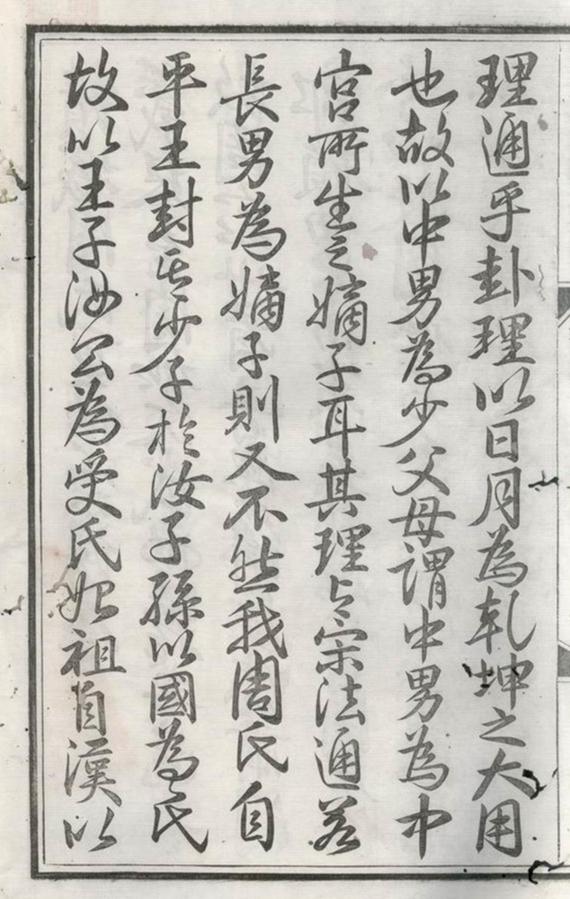 理通乎卦理以日月為乾坤之大用
也故以中男為少父母謂中男為中
宮所生之嫡子耳其理与宗法通若
長男為嫡子則又不然我周氏自
平王封其少子於汝子孫以國為氏
故以王子汝公為受氏始祖自漢以